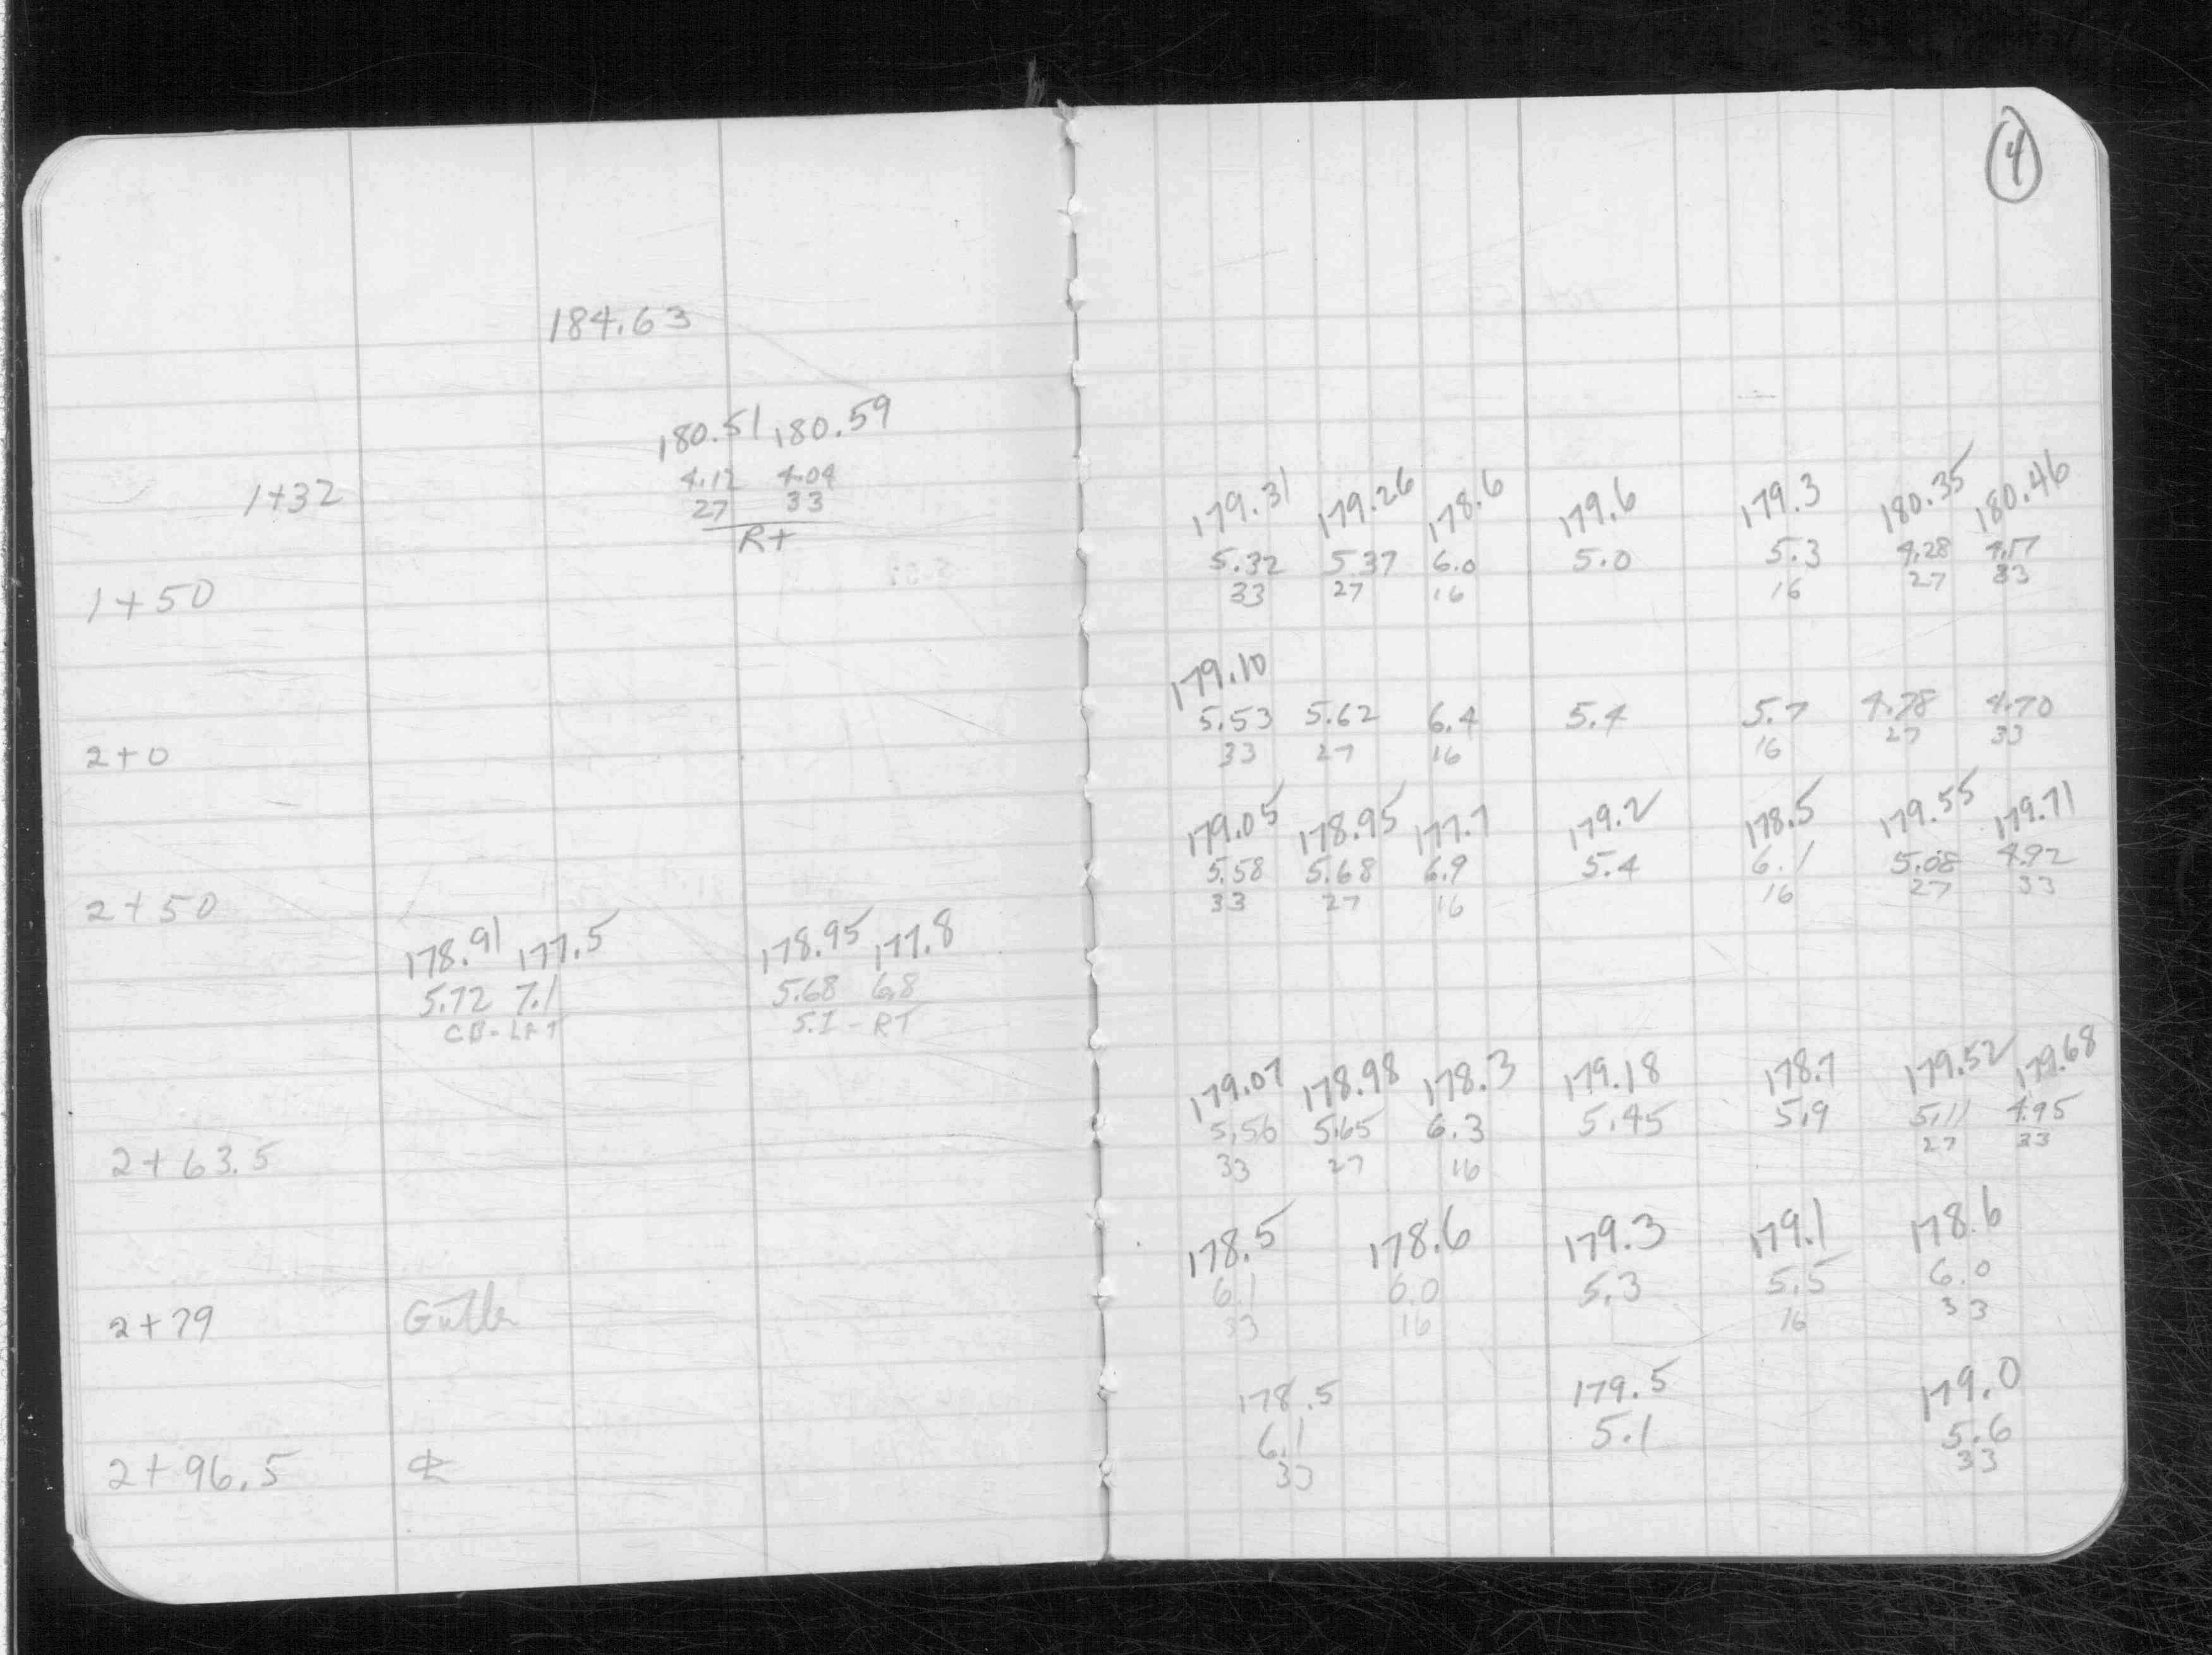 4
184.63
180.51 180.59
4.12 4.04
1+32 27 33
R+
179.31 179.26 178.6 179.6 179.3 180.35 180.46
5.32 5.37 6.0 5.0 5.3 4.28 4.17
1+50 33 27 16 16 27 33
179.10
5.53 5.62 6.4 5.4 5.7 4.78 4.70
2+0 33 27 16 16 27 33
179.05 178.95 177.7 179.2 178.5 179.55 179.71
5.58 5.68 6.9 5.4 6.1 5.08 4.92
2+50 33 27 16 16 27 33
178.91 177.5 178.95 177.8
5.72 7.1 5.68 6.8
CB-LFT S.I-RT
179.07 178.98 178.3 179.18 178.7 179.52 179.68
5.56 5.65 6.3 5.45 5.9 5.11 4.95
2+63.5 33 27 16 27 33
178.5 178.6 179.3 179.1 178.6
6.1 6.0 5.3 5.5 6.0
2+79 Gutter 33 16 16 33
178.5 179.5 179.0
6.1 5.1 5.6
2+96.5 ℄ 33 33